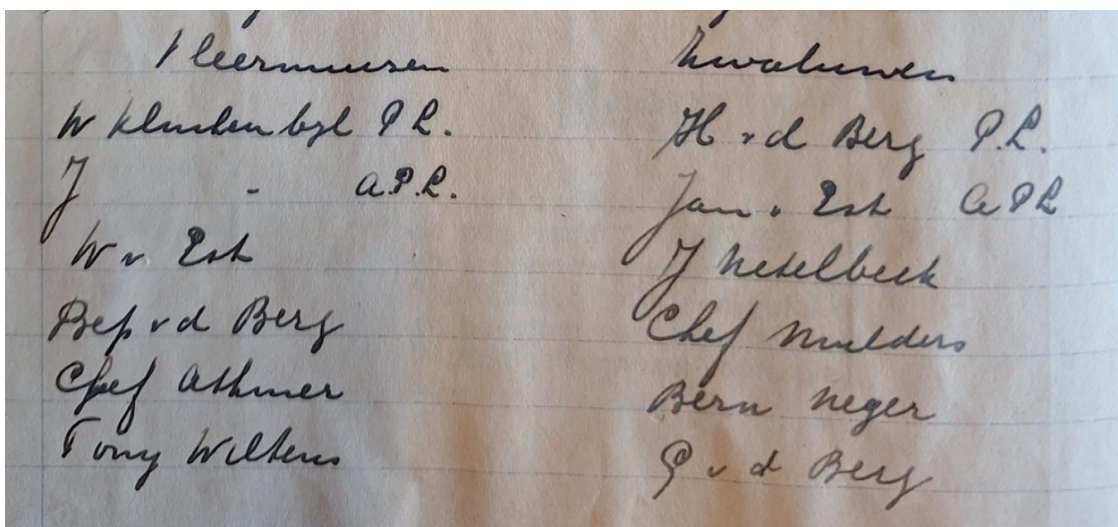 Vleermuisen
W Kluitenbyl P.L.
J - A.P.L.
W v. Esh
Bep v d Berg
Chef Athmer
Tony Wiltens
Zwaluwen
H v d Berg P.L.
Jan v. Esh A P L
J Netelbeek
Chef Mulders
Bern Neger
G v d Berg